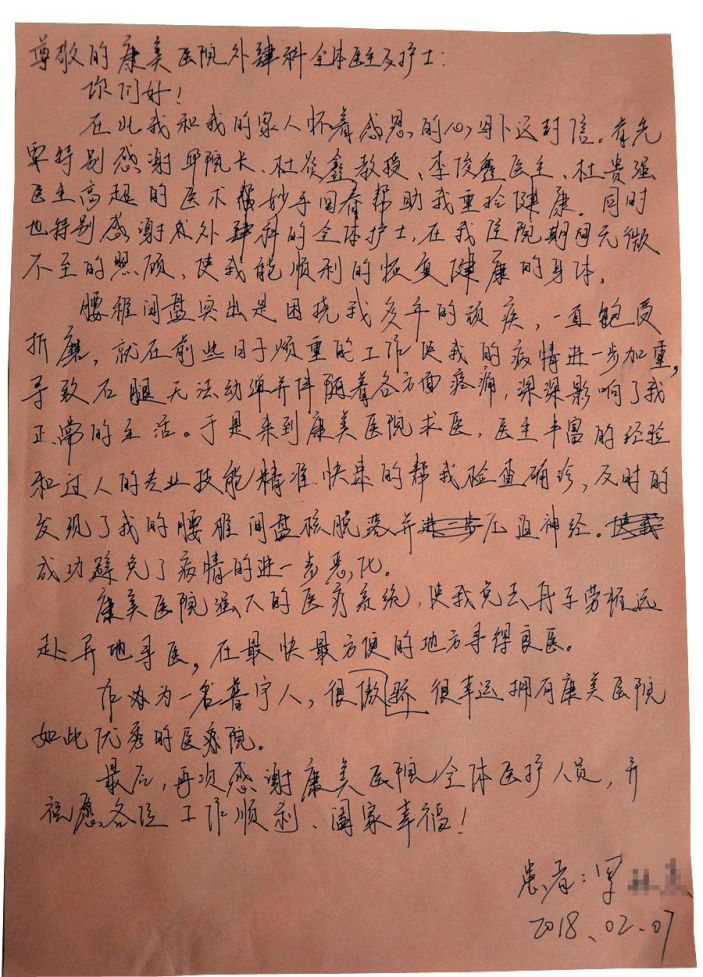 尊敬的康美医院外肆科全体医生及护士：
你们好！
在此我和我的家人怀着感恩的心写下这封信。首先
要特别感谢邱院长、杜炎鑫教授、李俊鑫医生、杜贵强
医生高超的医术 妙手回春帮助我重拾健康。同时
也特别感谢 外肆科的全体护士，在我住院期间无微
不至的照顾、使我能顺利的恢复健康的身体。
腰椎间盘突出是困扰我多年的顽疾，一直饱受
折磨，就在前些日子烦重的工作使我的病情进一步加重，
导致右腿无法动弹并伴随着各方面疼痛，深深影响了我
正常的生活。于是来到康美医院求医，医生丰富的经验
和过人的专业技能精准快速的帮我检查确诊，及时的
发现了我的腰椎间盘核脱落并压迫神经。
成功避免了病情的进一步恶化。
康美医院强大的医疗系统，使我免去舟车劳顿远
赴异地寻医，在最快最方便的地方寻得良医。
作为一名普宁人，很骄傲很幸运拥有康美医院
如此优秀的医院。
最后，再次感谢康美医院全体医护人员，并
祝愿各位工作顺利、阖家幸福！
患者：
2018、02、07